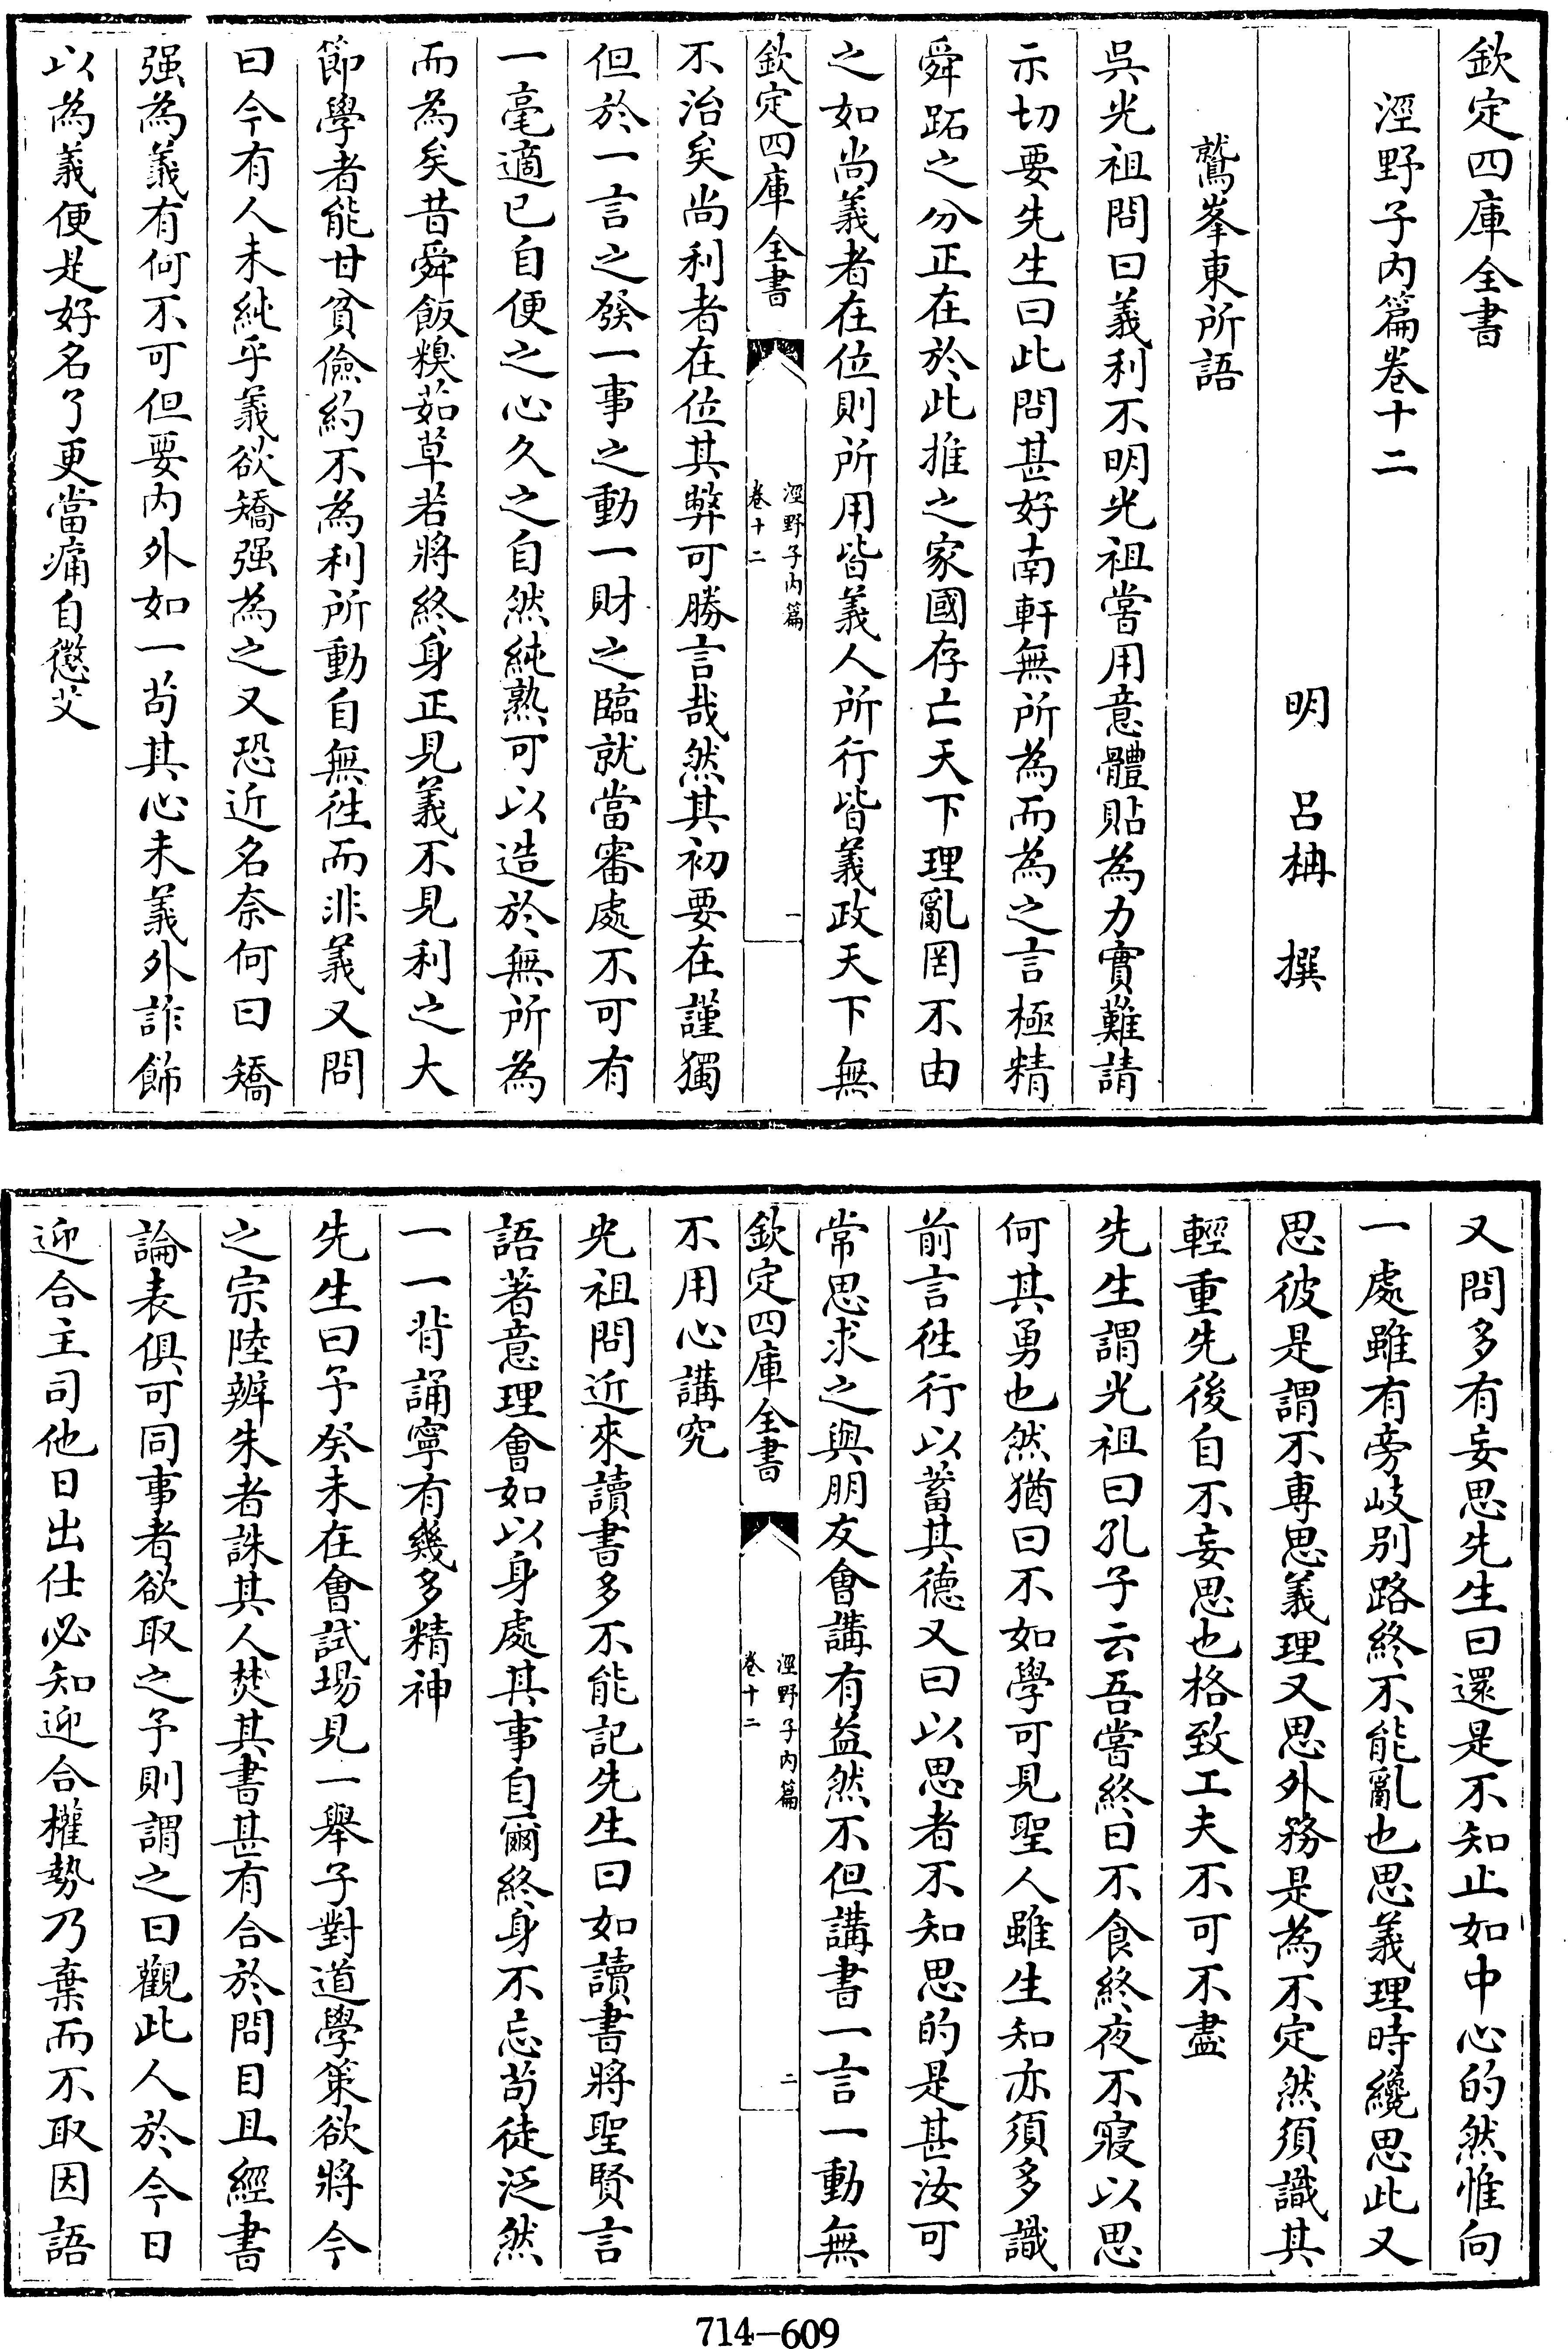 欽定四庫全書
涇野子内篇卷十二
明 呂柟 撰
鷲峯東所語
吳光祖問曰義利不明光祖嘗用意體貼為力實難請
示切要先生曰此問甚好南軒無所為而為之言極精
舜跖之分正在於此推之家國存亡天下理亂罔不由
之如尚義者在位則所用皆義人所行皆義政天下無
欽定四庫全書
涇野子内篇
卷十二
一
不治矣尚利者在位其弊可勝言哉然其初要在謹獨
但於一言之發一事之動一財之臨就當審處不可有
一毫適已自便之心久之自然純熟可以造於無所為
而為矣昔舜飯糗茹草若將終身正見義不見利之大
節學者能甘貧儉約不為利所動自無徃而非義又問
曰今有人未純乎義欲矯强為之又恐近名奈何曰矯
强為義有何不可但要内外如一苟其心未義外詐飾
以為義便是好名了更當痛自懲艾
又問多有妄思先生曰還是不知止如中心的然惟向
一處雖有旁岐别路終不能亂也思義理時纔思此又
思彼是謂不專思義理又思外務是為不定然須識其
輕重先後自不妄思也格致工夫不可不盡
先生謂光祖曰孔子云吾嘗終日不食終夜不寢以思
何其勇也然猶曰不如學可見聖人雖生知亦須多識
前言徃行以蓄其德又曰以思者不知思的是甚汝可
常思求之與朋友會講有益然不但講書一言一動無
欽定四庫全書
涇野子内篇
卷十二
二
不用心講究
光祖問近來讀書多不能記先生曰如讀書將聖賢言
語著意理會如以身處其事自爾終身不忘苟徒泛然
一一背誦寧有幾多精神
先生曰予癸未在會試場見一舉子對道學策欲將今
之宗陸辨朱者誅其人焚其書甚有合於問目且經書
論表俱可同事者欲取之予則謂之曰觀此人於今日
迎合主司他日出仕必知迎合權勢乃棄而不取因語
714-609